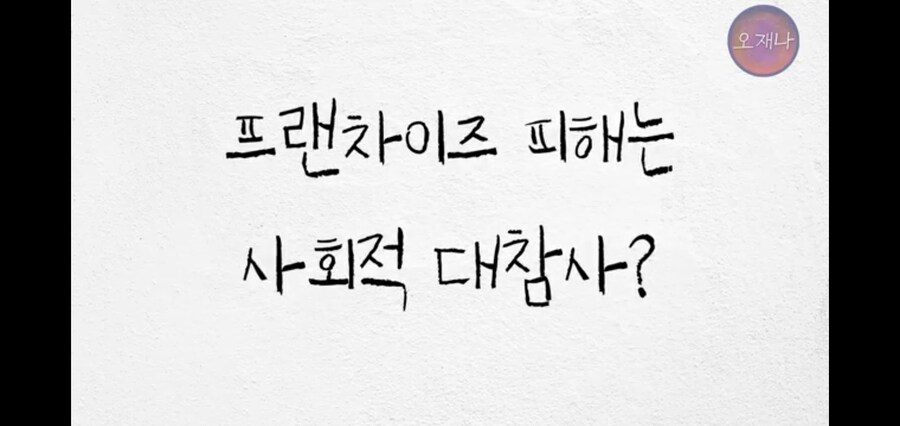 오재나
프랜차이즈 피해는
사회적 대참사?